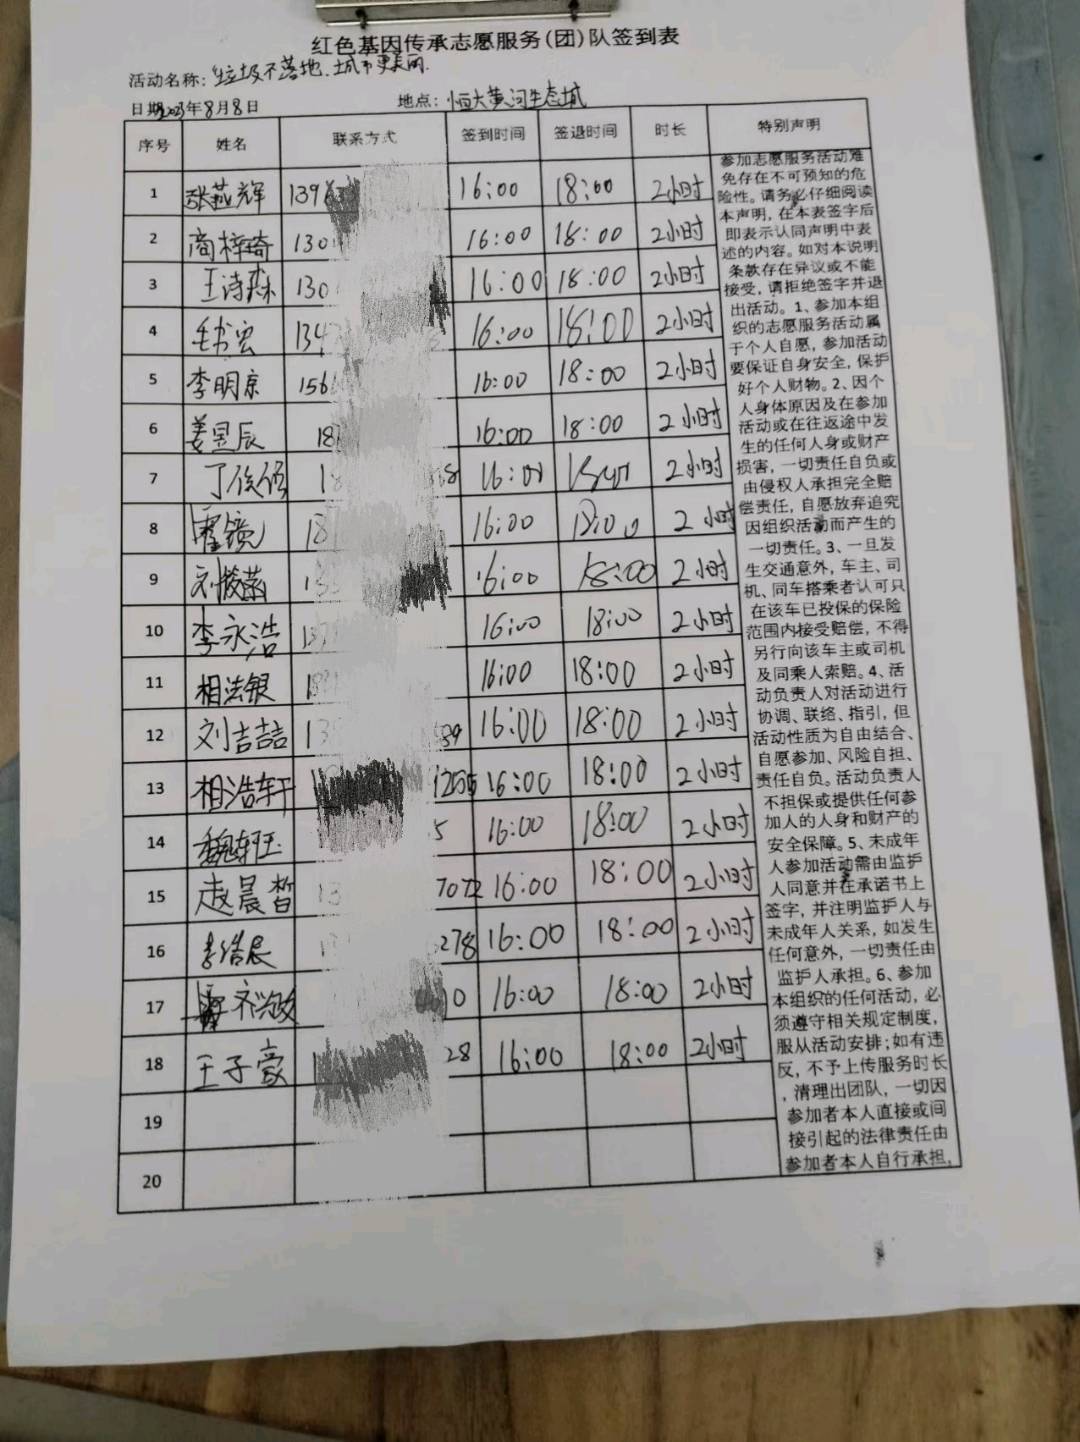 红色基因传承志愿服务(团)队签到表
活动名称：垃圾不落地、城市更美丽.
日期2023年8月8日 地点：恒大黄河生态城
序号 姓名 联系方式 签到时间 签退时间 时长 特别声明
1 张燕辉 139 16:00 18:00 2小时
2 商梓琦 130 16:00 18:00 2小时
3 王诗 130 16:00 18:00 2小时
4 134 16:00 18:00 2小时
5 李明京 156 16:00 18:00 2小时
6 姜昱辰 18 16:00 18:00 2小时
7 丁俊 1 68 16:00 2小时
8 18 16:00 18:00 2小时
9 刘 13 16:00 18:00 2小时
10 李永浩 137 16:00 18:00 2小时
11 相法银 16:00 18:00 2小时
12 刘吉喆 13 89 16:00 18:00 2小时
13 相浩轩 1255 16:00 18:00 2小时
14 魏轩玉 5 16:00 18:00 2小时
15 赵晨皙 13 7072 16:00 18:00 2小时
16 李浩辰 278 16:00 18:00 2小时
17 0 16:00 18:00 2小时
18 王子豪 28 16:00 18:00 2小时
19
20
参加志愿服务活动难
免存在不可预知的危
险性。请务必仔细阅读
本声明，在本表签字后
即表示认同声明中表
述的内容。如对本说明
条款存在异议或不能
接受，请拒绝签字并退
出活动。1、参加本组
织的志愿服务活动属
于个人自愿，参加活动
要保证自身安全，保护
好个人财物。2、因个
人身体原因及在参加
活动或在往返途中发
生的任何人身或财产
损害，一切责任自负或
由侵权人承担完全赔
偿责任，自愿放弃追究
因组织活动而产生的
一切责任。3、一旦发
生交通意外，车主、司
机、同车搭乘者认可只
在该车已投保的保险
范围内接受赔偿，不得
另行向该车主或司机
及同乘人索赔。4、活
动负责人对活动进行
协调、联络、指引，但
活动性质为自由结合、
自愿参加、风险自担、
责任自负。活动负责人
不担保或提供任何参
加人的人身和财产的
安全保障。5、未成年
人参加活动需由监护
人同意并在承诺书上
签字，并注明监护人与
未成年人关系，如发生
任何意外，一切责任由
监护人承担。6、参加
本组织的任何活动，必
须遵守相关规定制度，
服从活动安排；如有违
反，不予上传服务时长
，清理出团队，一切因
参加者本人直接或间
接引起的法律责任由
参加者本人自行承担，